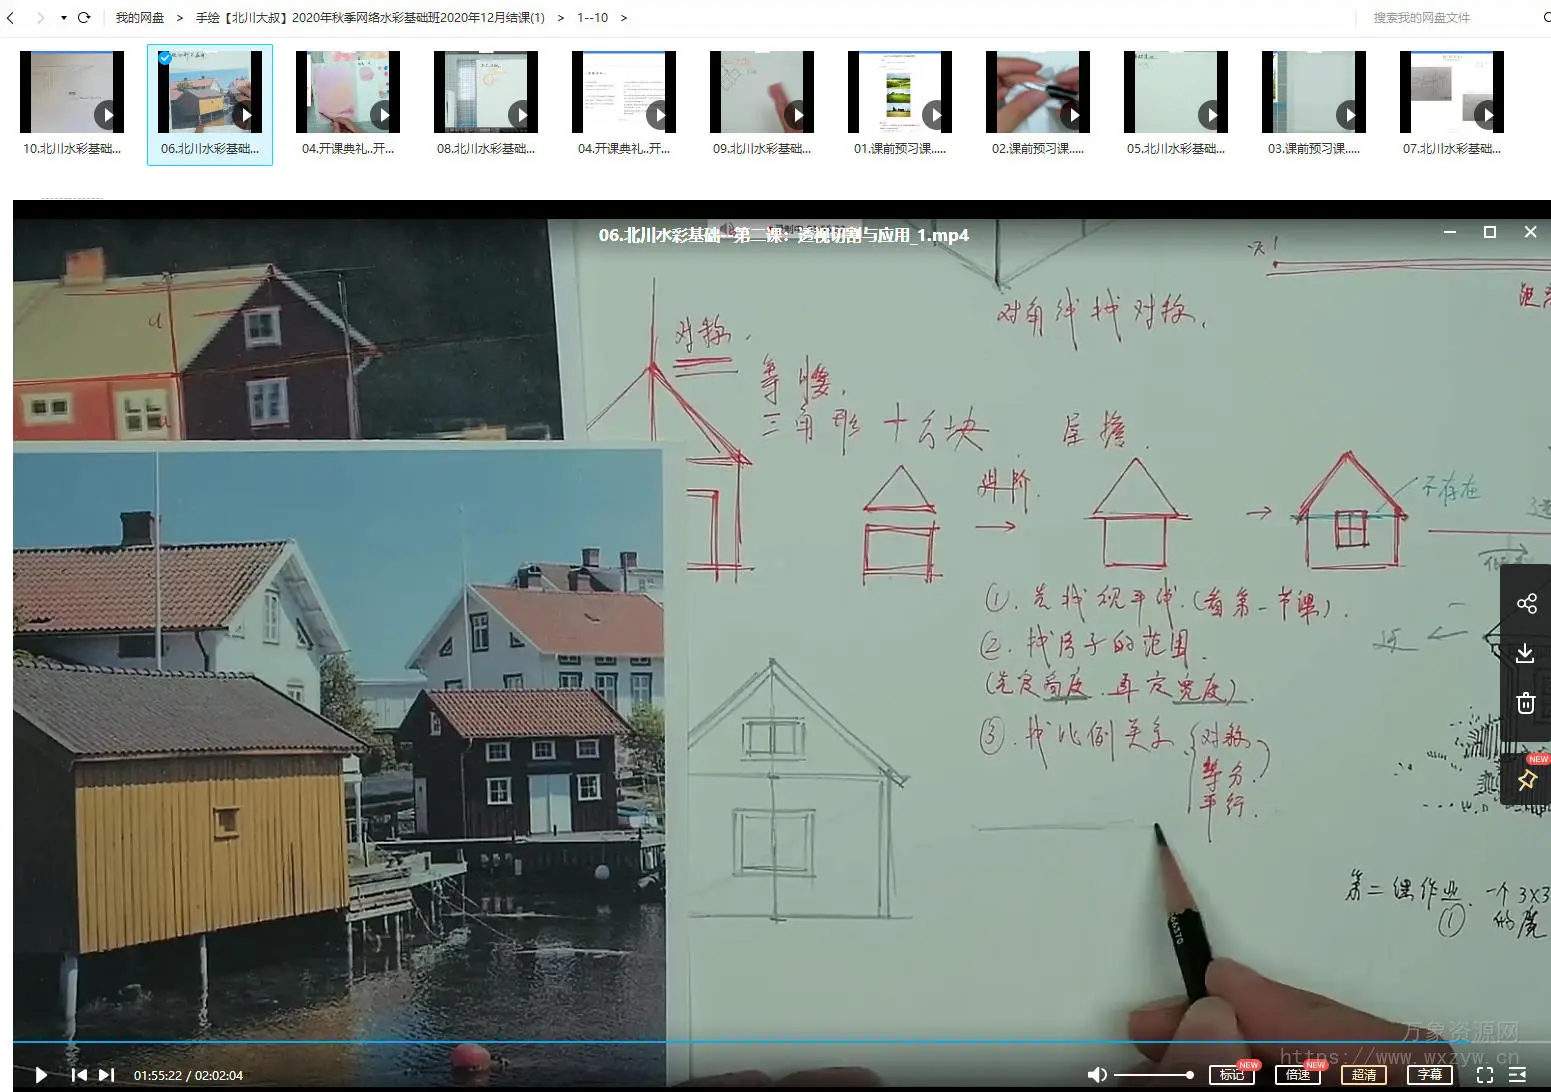 我的网盘 > 手绘【北川大叔】2020年秋季网络水彩基础班2020年12月结课(1) > 1--10 >
搜索我的网盘文件
10.北川水彩基础...
06.北川水彩基础...
04.开课典礼..开...
08.北川水彩基础...
04.开课典礼..开...
09.北川水彩基础...
01.课前预习课.....
02.课前预习课.....
05.北川水彩基础...
03.课前预习课.....
07.北川水彩基础...
06.北川水彩基础--第二课：透视切割与应用_1.mp4
对角线找对称.
对称.
等腰.
三角形 十方块
屋檐.
进阶.
不存在
①.先找视平线.(看第一节课).
②.找房子的范围.
(先定高度.再定宽度).
③.找比例关系(对称
等分.
平行.)
近
第二课作业.一个3x3
① 的魔
a
a
66370
NEW
万象资源网
https://www.wxzyw.cn
01:55:22 / 02:02:04
标记
NEW
倍速
NEW
超清
字幕